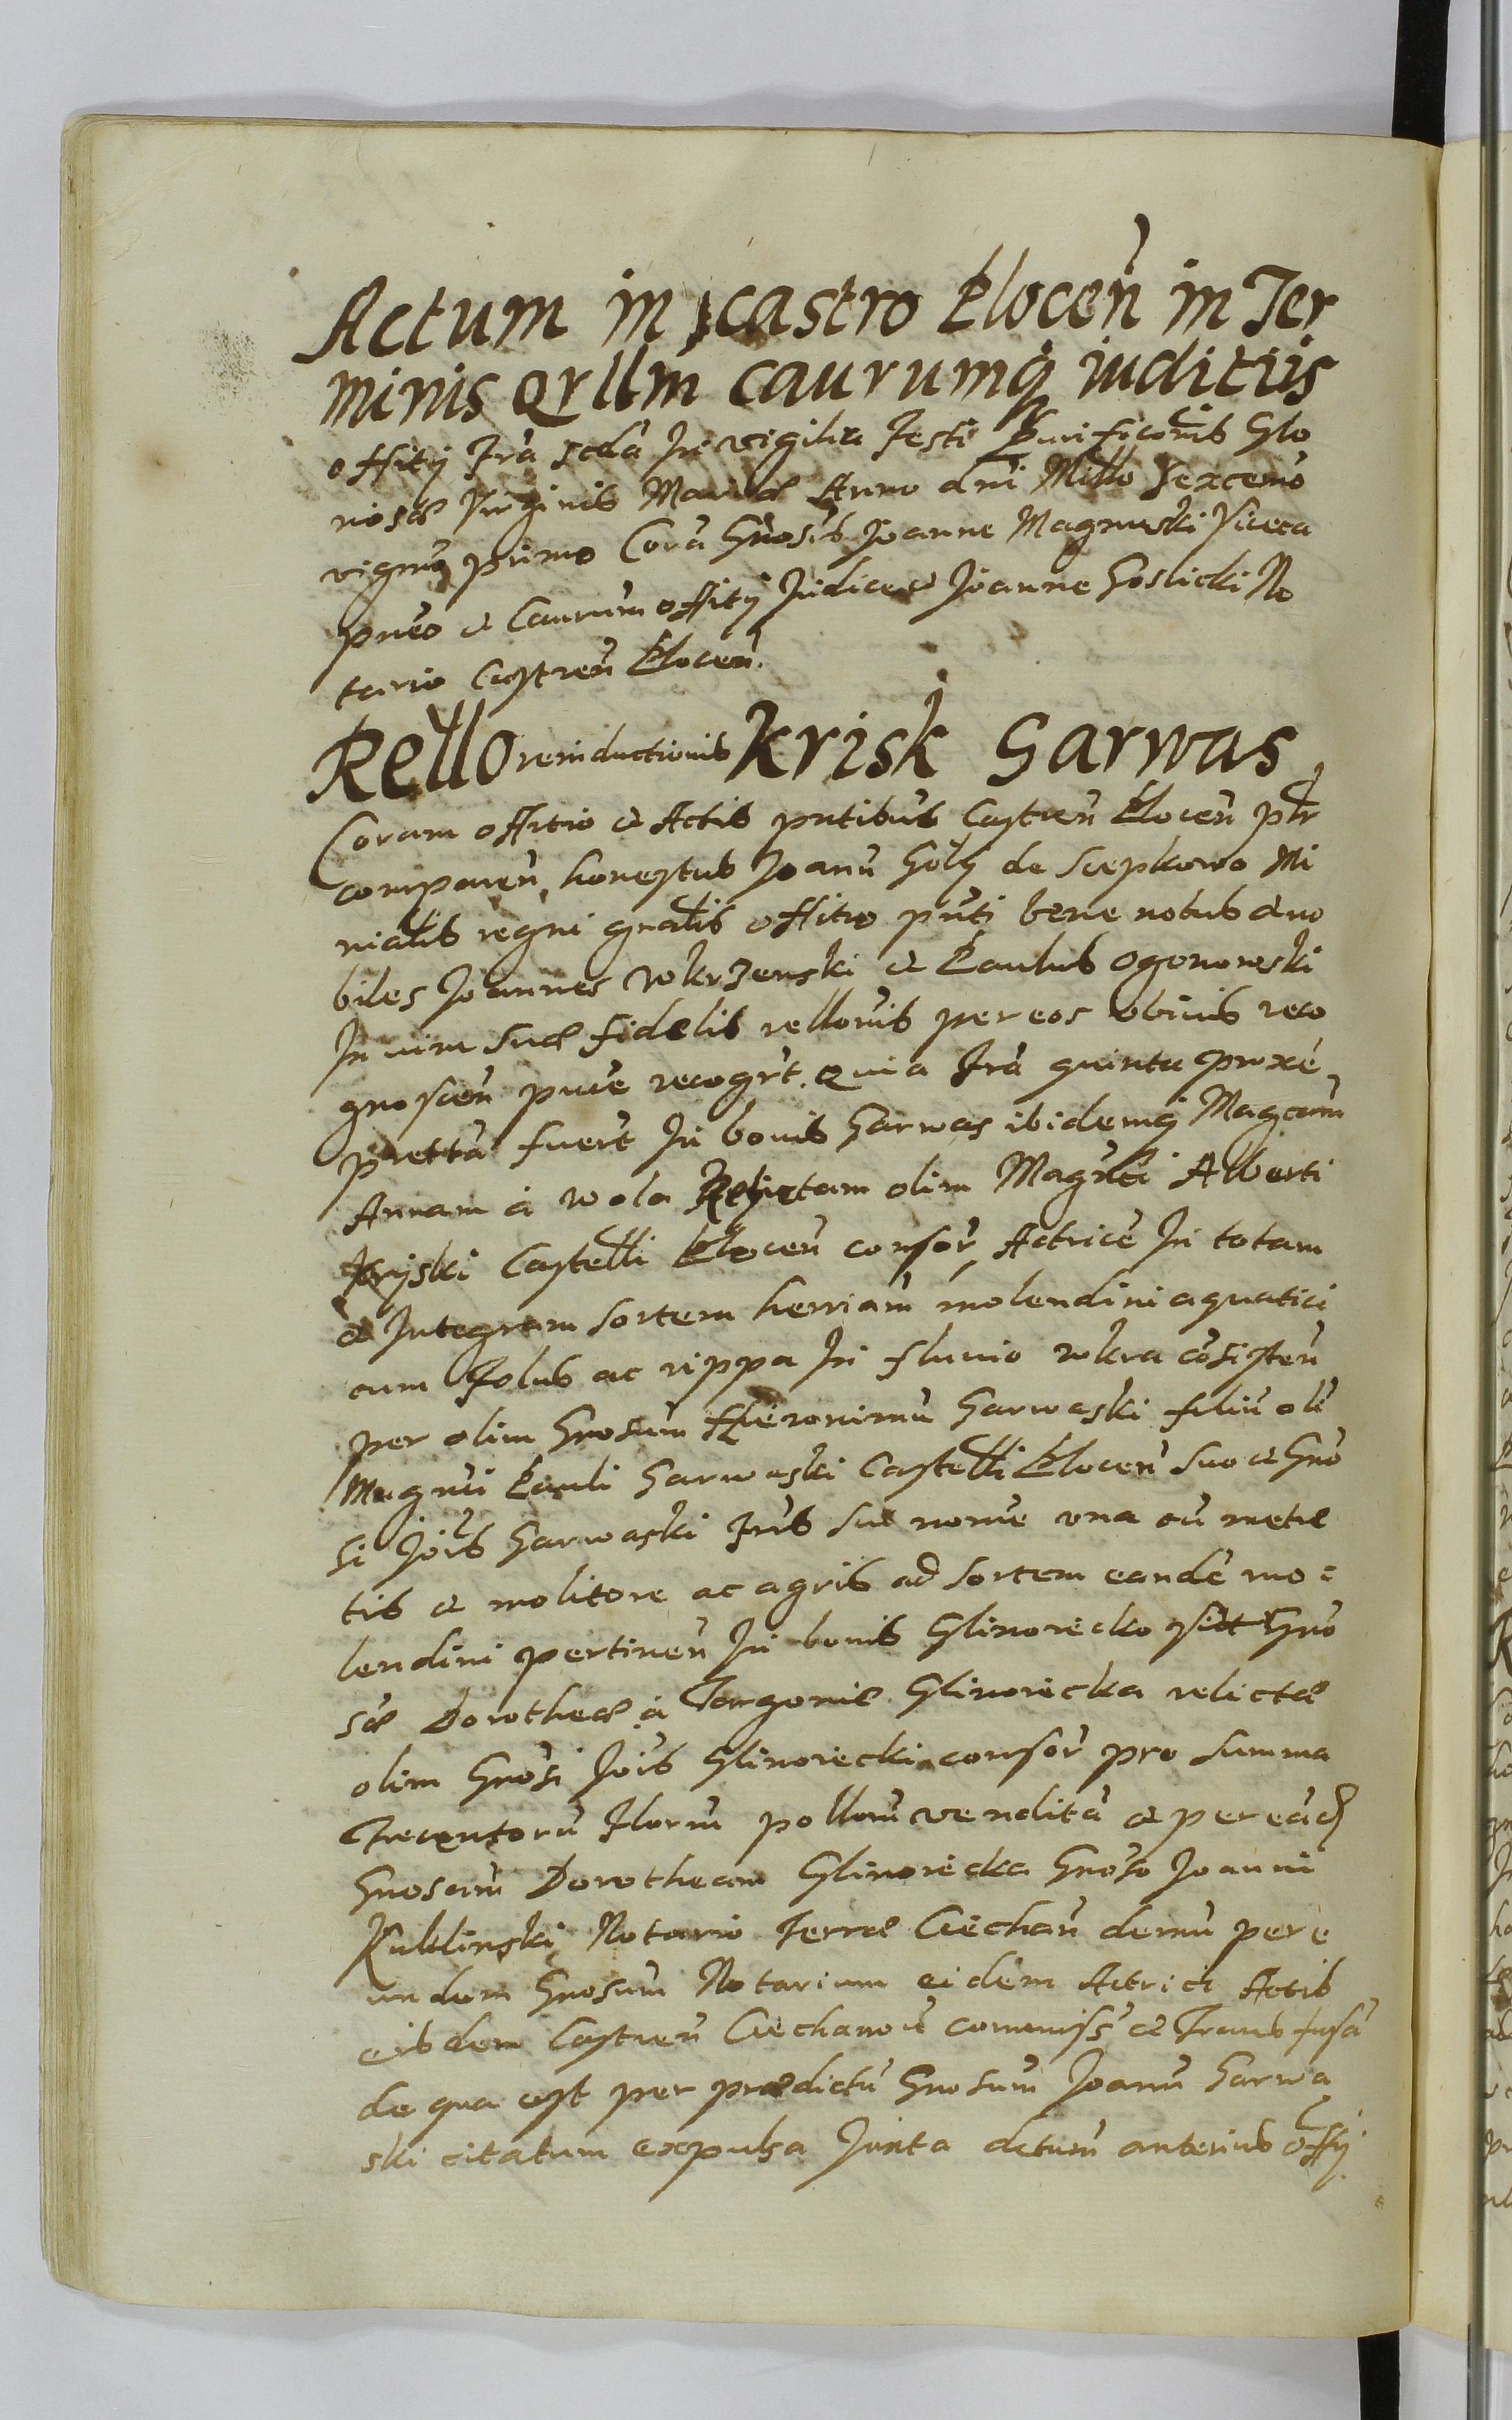 Actum in castro Plocen̄ in Ter
minis Qrllm̄ caurumq̨ iuditiis
offitij Fr̃a scda In vigilia Festi Purificōnis Glo
riosæ Virginis Mariæ Anno dni Mill̃o sexcenō
vigm̄o primo Corã Gn̄osis Joanne Magnuski Viceca
pn̄eo et Caurum̄ offitij Judice et Joanne Goslicki No
tario Castren̄ Plocen̄.
Rello reinductionis Krisk Sarwas
Coram offitio et Actis pn̄tibus Castren̄ Plocen̄ pl̃r
comparen̄ honestus Joann̄ Goly de Scepkowo Mi
nialis regni gn̄alis offitio pn̄ti bene notus et no
biles Joannes Wkrzenski et Paulus Ogonowski
In vim suæ fidelis rellōnis per eos obinis reco
gnoscen̄ pure recogr̄t. Quia Fr̃a quinta proxē
prættã fuer̄t In bonis Sarwas ibidemq̨ Magcam̄
Annam à Wola Relictam olim Magn̄ci Alberti
Kryski Castelli Plocen̄ consor̄ Actricē In totam
et Integram sortem herriam̄ molendini aquatici
cum Folus ac rippa In fluvio Wkra cōsisten̄
per olim Gn̄osum Hieronimū Sarwaski filiū oli
Magn̄ci Pauli Sarwaski Castelli Plocen̄ suo et Gn̄o
si Jois Sarwaski Frīs sui nome una cū metre
tis et molitore ac agris ad sortem eandē mo=
lendini pertinen̄ In bonis Glinoiecko sitt Gn̄o
sæ Dorotheæ à Targonie Glinoiecka relictæ
olim Gn̄osi Jois Glinoiecki consor̄ pro summa
Trecentorū Florm̄ pollom̄ venditã et per eãd
Gn̄osam Dorotheam Glinoiecka Gn̄oso Joanni
Kuklinski Notario Terræ Ciechan̄ demū per e
undem Gn̄osum Notarium eidem Actrici Actis
eisdem Castren̄ Ciechanoū commiss et Transfusã
de qua est per prædictū Gn̄osum Joann̄ Sarwa
ski citatum expulsa Juxta dctum̄ anterius offij